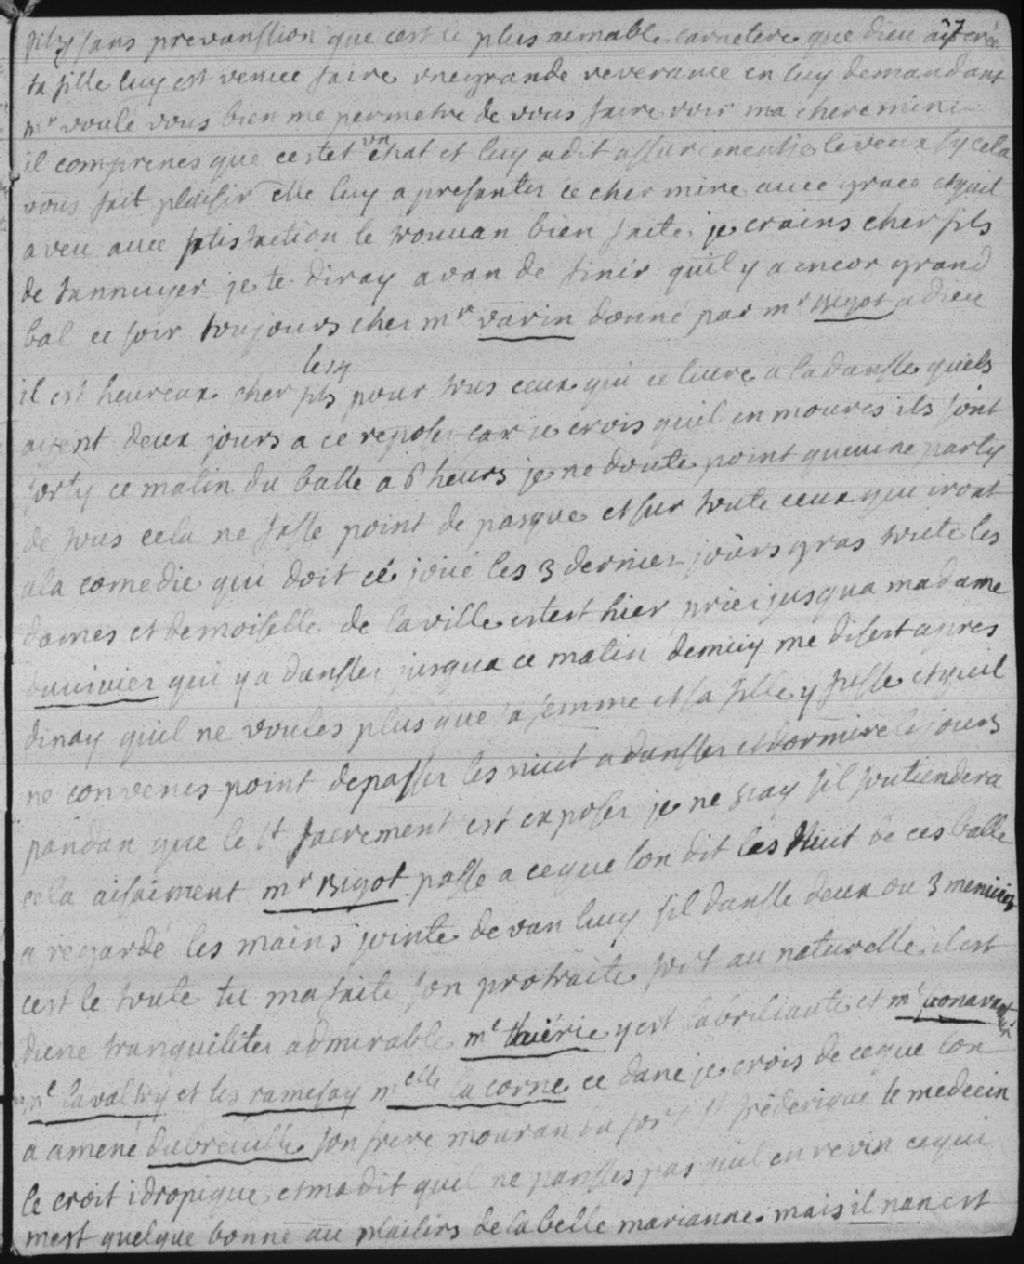 37
fily sans prevanssion que cest le plus aemable caractere que dieu aye creé
ta fille luy est venue faire une grande reverance en luy demandant
mr voulé vous bien me permetre de vous faire voir ma chere mine
il comprenes que cestet un chat et luy a dit assurement je le veux sy cela
vous fait plaisir elle luy a presanter ce cher mine avec grace et quil
a veu avec satisfaction le trouvan bien faite je crains cher fils
de tannuyer je te diray avan de finir quil y a encor grand
bal ce soir toujours ches mr varin donné par mr Bigot adieu
le 14
il est heureux cher fils pour tous ceux qui ce livre a la dansse quels
ayent deux jours a ce reposer car je crois quil en moures ils sont
sorty ce matin du balle a 6 heurs je ne doute point queune party
de tous cela ne fasse point de pasque et sur toute ceux qui iront
a la comedie qui doit cé joué les 3 dernier jours gras toute les
dames et demoiselle de la ville estest hier priei jusqua madame
duvivier qui y a dansser jusqua ce matin demuy me diset apres
dinay quil ne voules plus que sa femme et sa fille y fusse et quil
ne convenes point de passer les nuit a dansser et dormire le jours
pandan que le st sacrement est exposer je ne scay sil soutiendera
cela aisaiment mr Bigot passe a ceque lon dit les Nuit de ces balle
a regardé les mains jointe devan luy sil dansse deux ou 3 menuéis
cest le toute tu ma faite son protraite soit au naturelle il est
dune tranquilitei admirable me thiérie y est la briliante et me
me lavaltry et les ramesay melle la corne ce dane je crois de ceque lon
a amené dubreuille son frere mouran du fort st fréderique le medecin
le croit idropique et ma dit quil ne pansses pas quil en revin cequi
mest quelque bonne au plaisirs de la belle marianne mais il nan est